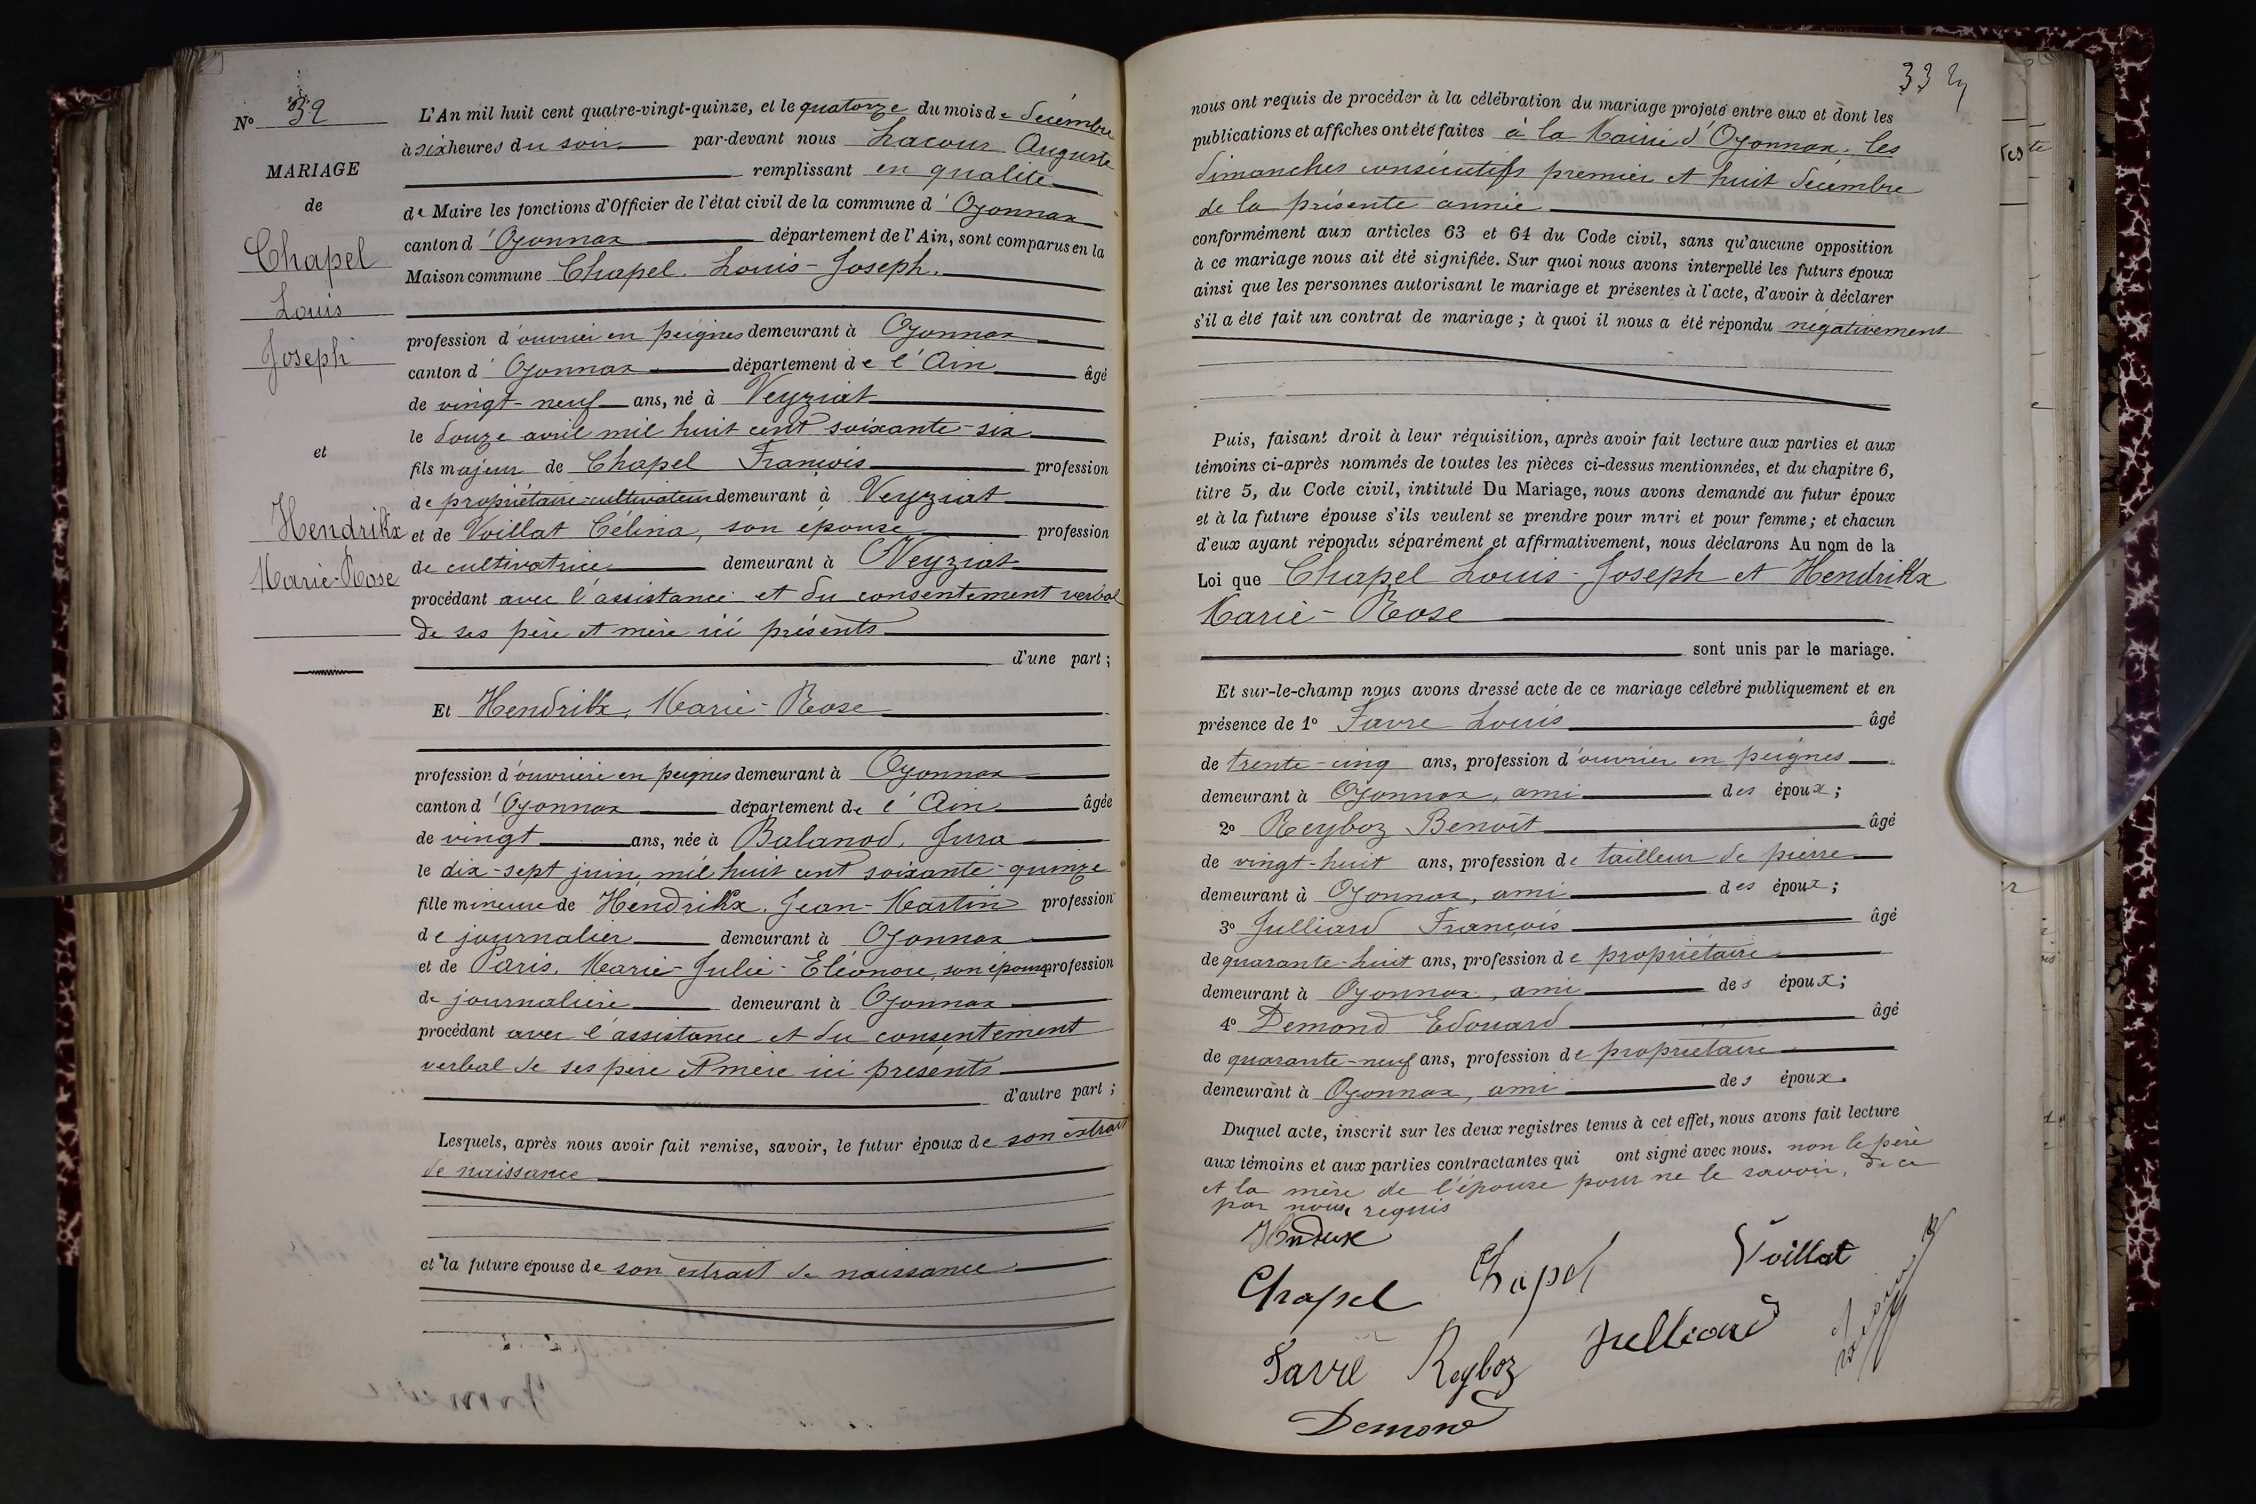 N° 32
MARIAGE
de
Chapel
Louis
Joseph
et
Hendrikx
Marie-Rose
L'An mil huit cent quatre-vingt-quinze, et le quatorze du mois de décembre
à six heures du soir par-devant nous Lacour Auguste
remplissant en qualité
de Maire les fonctions d'Officier de l'état civil de la commune d'Oyonnax
canton d'Oyonnax département de l'Ain, sont comparus en la
Maison commune Chapel. Louis-Joseph.
profession d'ouvrier en peignes demeurant à Oyonnax
canton d'Oyonnax département de l'Ain âgé
de vingt-neuf ans, né à Veyziat
le douze avril mil huit cent soixante-six
fils majeur de Chapel François profession
de propriétaire-cultivateur demeurant à Veyziat
et de Voillat Célina, son épouse profession
de cultivatrice demeurant à Veyziat
procédant avec l'assistance et du consentement verbal
de ses père et mère ici présents
d'une part;
Et Hendrikx, Marie-Rose
profession d'ouvrière en peignes demeurant à Oyonnax
canton d'Oyonnax département de l'Ain âgée
de vingt ans, née à Balanod, Jura
le dix-sept juin mil huit cent soixante-quinze
fille mineure de Hendrikx. Jean-Martin profession
de journalier demeurant à Oyonnax
et de Paris. Marie-Julie-Eléonore, son épouse profession
de journalière demeurant à Oyonnax
procédant avec l'assistance et du consentement
verbal de ses père et mère ici présents
d'autre part;
Lesquels, après nous avoir fait remise, savoir, le futur époux de son extrait
de naissance
et la future épouse de son extrait de naissance
33
nous ont requis de procéder à la célébration du mariage projeté entre eux et dont les
publications et affiches ont été faites à la Mairie d'Oyonnax, les
dimanches consécutifs premier et huit décembre
de la présente année
conformément aux articles 63 et 64 du Code civil, sans qu'aucune opposition
à ce mariage nous ait été signifiée. Sur quoi nous avons interpellé les futurs époux
ainsi que les personnes autorisant le mariage et présentes à l'acte, d'avoir à déclarer
s'il a été fait un contrat de mariage; à quoi il nous a été répondu négativement
Puis, faisant droit à leur réquisition, après avoir fait lecture aux parties et aux
témoins ci-après nommés de toutes les pièces ci-dessus mentionnées, et du chapitre 6,
titre 5, du Code civil, intitulé Du Mariage, nous avons demandé au futur époux
et à la future épouse s'ils veulent se prendre pour mari et pour femme; et chacun
d'eux ayant répondu séparément et affirmativement, nous déclarons Au nom de la
Loi que Chapel Louis-Joseph et Hendrikx
Marie-Rose
sont unis par le mariage.
Et sur-le-champ nous avons dressé acte de ce mariage célébré publiquement et en
présence de 1° Favre Louis âgé
de trente-cinq ans, profession d'ouvrier en peignes
demeurant à Oyonnax, ami des époux;
2° Reyboz Benoît âgé
de vingt-huit ans, profession de tailleur de pierre
demeurant à Oyonnax, ami des époux;
3° Julliard François âgé
de quarante-huit ans, profession de propriétaire
demeurant à Oyonnax, ami des époux;
4° Demond Edouard âgé
de quarante-neuf ans, profession de propriétaire
demeurant à Oyonnax, ami des époux.
Duquel acte, inscrit sur les deux registres tenus à cet effet, nous avons fait lecture
aux témoins et aux parties contractantes qui ont signé avec nous. non le père
et la mère de l'épouse pour ne le savoir, de ce
par nous requis
Chapel Chapel Voillat
Favre Reyboz Julliard
Demond